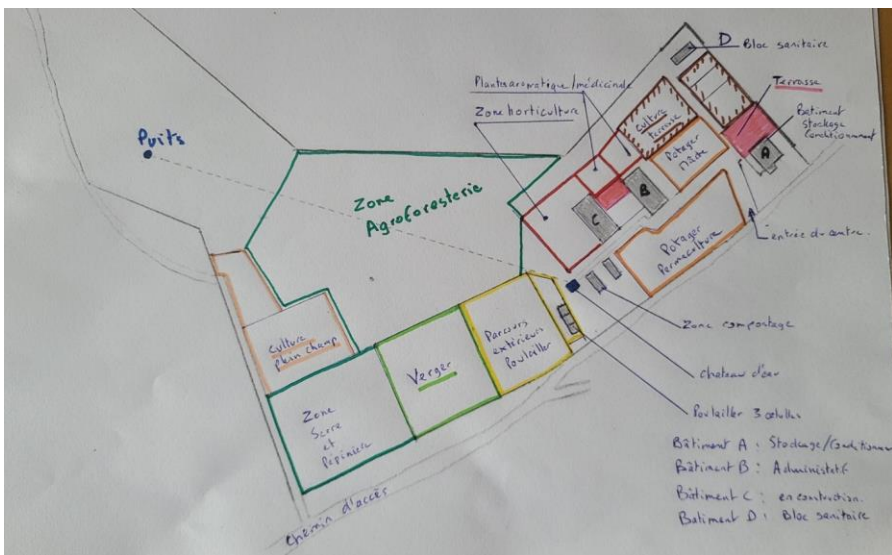 D
Bloc sanitaire
Plantes aromatique/médicinale
Zone horticulture
Terrasse
Bâtiment
stockage
Conditionnement
Culture
terrasse
Potager
Mâche
A
Puits
Zone
Agroforesterie
B
C
Potager
Permaculture
entrée du centre.
Zone compostage
Chateau d'eau
Poulailler 3 cellules
Culture
plein champ
Parcours
extérieurs
Poulailler
Verger
Zone
Serre
et
Pépinière
Chemin d'accès
Bâtiment A : Stockage/Conditionnem
Bâtiment B : Administatif
Bâtiment C : en construction.
Batiment D : Bloc sanitaire